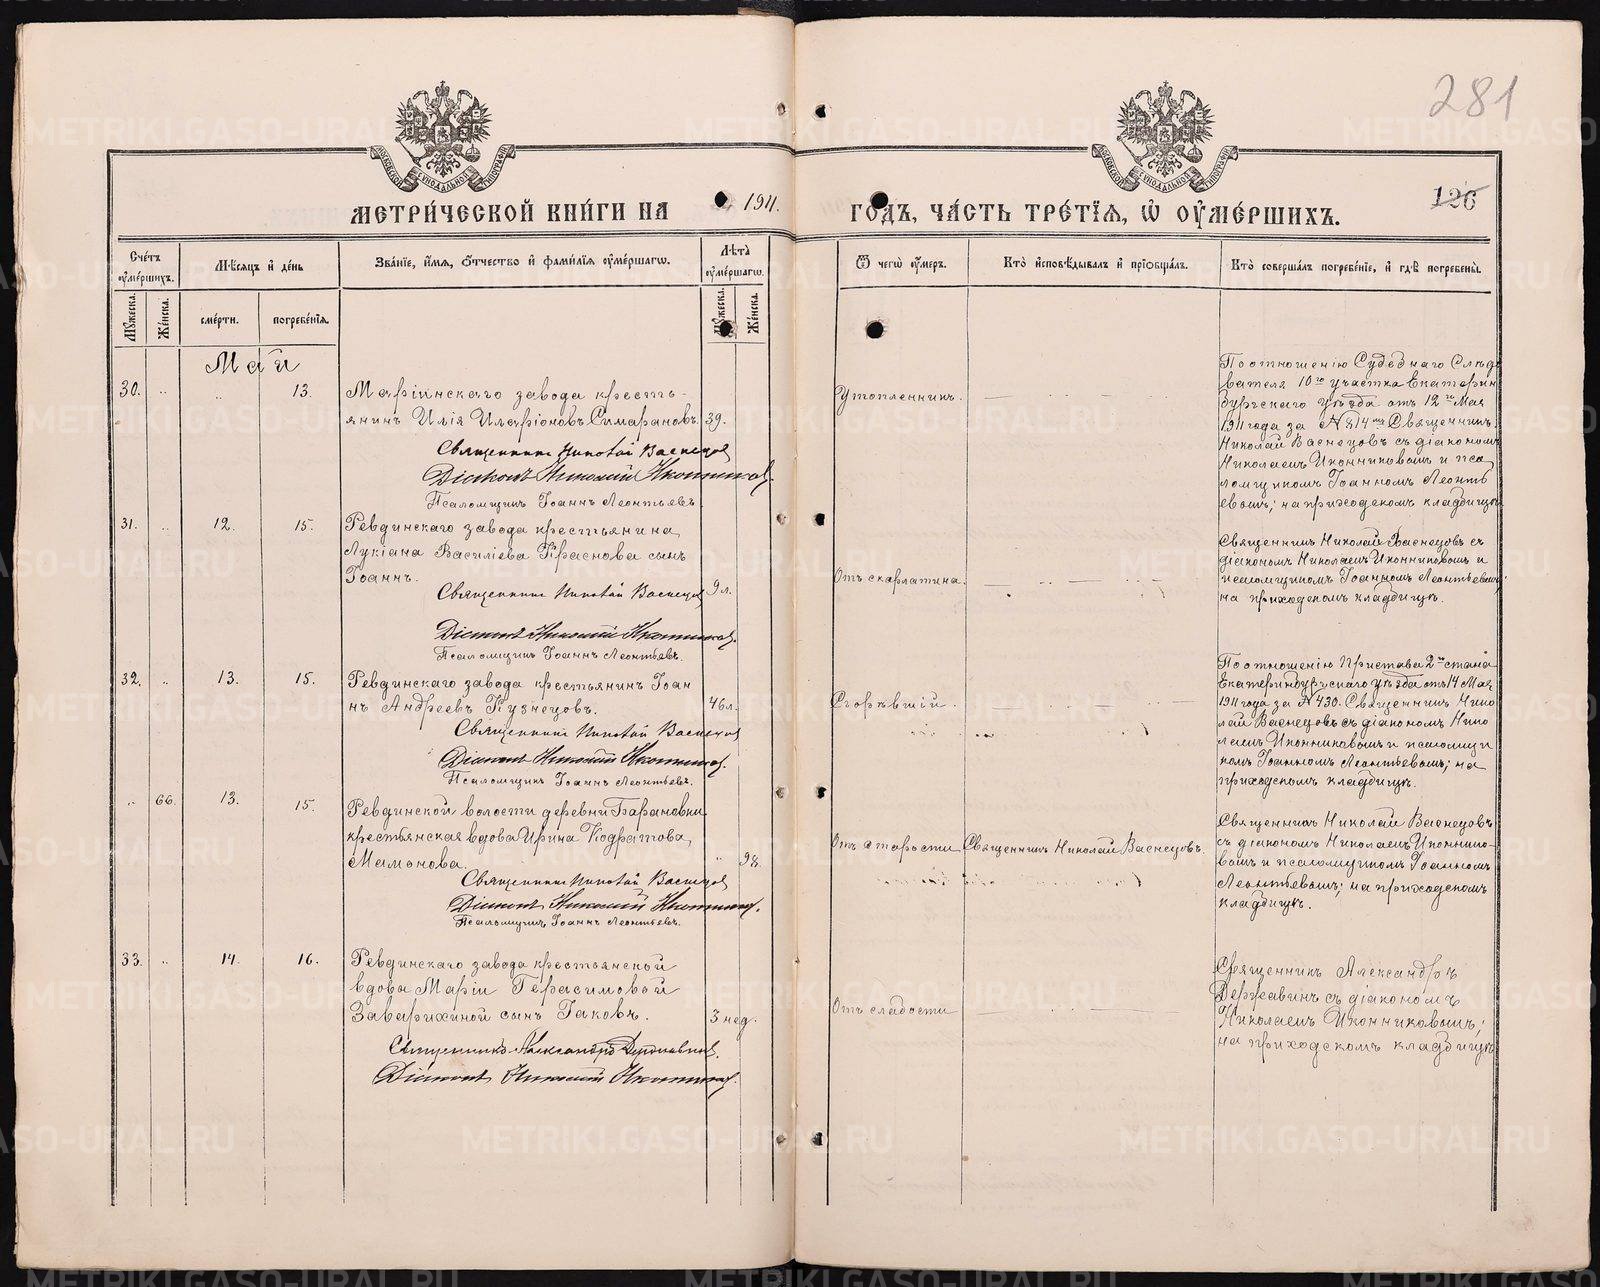 281
126
МЕТРИ́ЧЕСКОЙ КНИ́ГИ НА 1911.
ГОДЪ, ЧА́СТЬ ТРЕ́ТІѦ, Ѽ ОУ҆МЕ́РШИХЪ.
Сче́тъ оу҆ме́ршихъ.
Мѣ́сѧцъ и҆ де́нь
Зва́ніе, и҆́мѧ, ѻ҆́тчество и҆ фами́лїѧ оу҆ме́ршагѡ.
Лѣ́та оу҆ме́ршагѡ.
Ѿ чегѡ̀ оу҆́меръ.
Кто̀ и҆сповѣ́дывалъ и҆ прїѡбща́лъ.
Кто̀ соверша́лъ погребе́нїе, и҆ гдѣ̀ погребены̀.
Мꙋ́жеска.
Же́нска.
сме́рти.
погребе́нїѧ.
Мꙋ́жеска.
Же́нска.
Май
30. 13.
Маріинскаго завода кресть-
янинъ Илія Иларіоновъ Симарановъ. 39.
Священникъ Николай Васнецов
Діаконъ Николай Иконников.
Псаломщикъ Іоаннъ Леонтьевъ.
Утопленникъ.
По отношенію Судебнаго Слѣдо
вателя 10го участка Екатерин
бургскаго уѣзда отъ 12го Мая
1911 года за № 814мъ Священникъ
Николай Васнецовъ съ діакономъ
Николаемъ Иконниковымъ и пса
ломщикомъ Іоанномъ Леонть
евымъ; на приходскомъ кладбищѣ
31. 12. 15.
Ревдинскаго завода крестьянина
Лукіана Василіева Краснова сынъ
Іоаннъ. 9 л.
Священникъ Николай Васнецов
Діаконъ Николай Иконников.
Псаломщикъ Іоаннъ Леонтьевъ.
Отъ скарлатина.
Священникъ Николай Васнецовъ съ
діакономъ Николаемъ Иконниковымъ и
псаломщикомъ Іоанномъ Леонтьевымъ;
на приходскомъ кладбищѣ.
32. 13. 15.
Ревдинскаго завода крестьянинъ Іоан
нъ Андреевъ Кузнецовъ. 46 л.
Священникъ Николай Васнецов
Діаконъ Николай Иконников.
Псаломщикъ Іоаннъ Леонтьевъ.
Сгорѣвшій.
По отношенію Пристава 2го стана
Екатеринбургскаго уѣзда отъ 14 Мая
1911 года за № 430. Священникъ Нико
лай Васнецовъ съ діакономъ Нико
лаемъ Иконниковымъ и псаломщи
комъ Іоанномъ Леонтьевымъ; на
приходскомъ кладбищѣ.
66. 13. 15.
Ревдинской волости деревни Барановки
крестьянская вдова Ирина Кодратова
Мамонова. 98.
Священникъ Николай Васнецов
Діаконъ Николай Иконников.
Псаломщикъ Іоаннъ Леонтьевъ.
Отъ старости
Священникъ Николай Васнецовъ.
Священникъ Николай Васнецовъ
съ діакономъ Николаемъ Иконнико-
вымъ и псаломщикомъ Іоанномъ
Леонтьевымъ; на приходскомъ
кладбищѣ.
33. 14. 16.
Ревдинскаго завода крестьянской
вдова Маріи Герасимовой
Заварихиной сынъ Іаковъ. 3 нед.
Священникъ Александръ Державинъ.
Діаконъ Николай Иконников.
Отъ слабости
Священникъ Александръ
Державинъ съ діакономъ
Николаемъ Иконниковымъ;
на приходскомъ кладбищѣ
METRIKI.GASO-URAL.RU